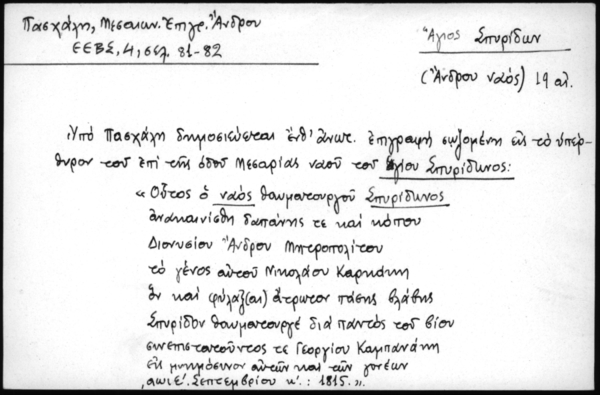 Πασχάλη, Μεσαιων. Ἐπιγρ. Ἄνδρου
ΕΕΒΣ, 4, σελ. 81-82
Ἅγιος Σπυρίδων
(Ἄνδρου ναός) 19 αἰ.
Ὑπό Πασχάλη δημοσιεύεται ἔνθ' ἀνωτ. ἐπιγραφή σωζομένη εἰς τό ὑπέρ-
θυρον τοῦ ἐπί τῆς ὁδοῦ Μεσαριᾶς ναοῦ τοῦ ἁγίου Σπυρίδωνος:
« Οὗτος ὁ ναός θαυματουργοῦ Σπυρίδωνος
ἀνακαινίσθη δαπάνης τε καί κόπου
Διονυσίου Ἄνδρου Μητροπολίτου
τό γένος αὐτοῦ Νικολάου Καρκάνη
ὅν καί φύλαξ(αι) ἄτρωτον πάσης βλάβης
Σπυρίδον θαυματουργέ διά παντός τοῦ βίου
συνεπιστατοῦντος τε Γεωργίου Καμπανάκη
εἰς μνημόσυνον αὐτῶν καί τῶν γονέων
,αωιε΄. Σεπτεμβρίου κ΄. : 1815. ».